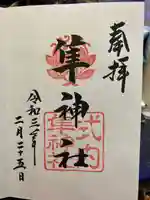 奉拝
隼神社
式内
令和三年
二月二十五日